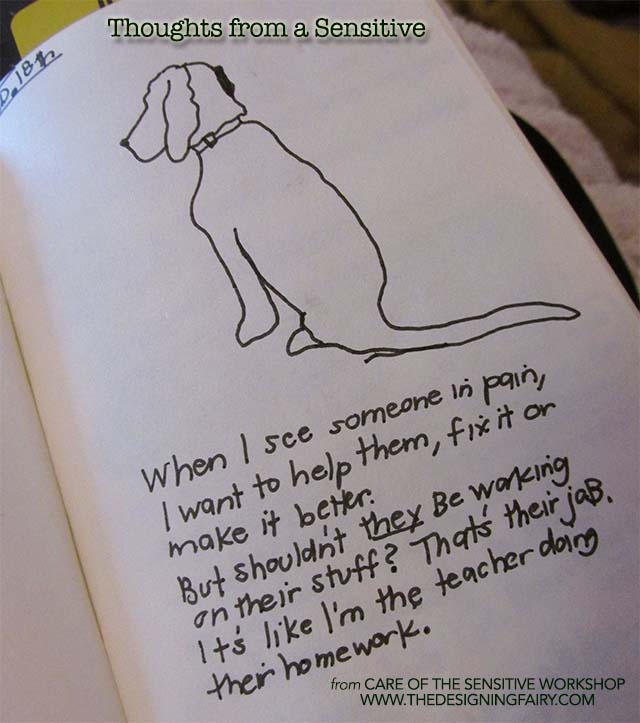 Thoughts from a Sensitive
18th
When I see someone in pain,
I want to help them, fix it or
make it better.
But shouldn't they Be working
on their stuff? That's their joB.
It's like I'm the teacher doing
their homework.
from CARE OF THE SENSITIVE WORKSHOP
WWW.THEDESIGNINGFAIRY.COM